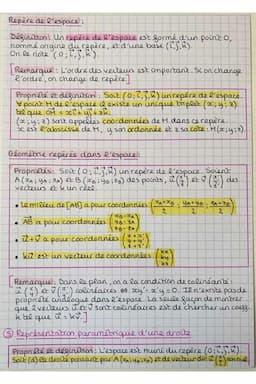 Repère de l'espace:
Définition: Un repère de l'espace est formé d'un point O,
nommé origine du repère, et d'une base (i⃗, j⃗, k⃗).
On le note (O; i⃗, j⃗, k⃗)
[Remarque: L'ordre des vecteurs est important. Si on change
l'ordre, on change de repère.]
Propriété et définition: Soit (O; i⃗, j⃗, k⃗) un repère de l'espace.
∀ point M de l'espace il existe un unique triplet (x; y; z)
tel que OM⃗ = xi⃗ + yj⃗ + zk⃗.
(x; y; z) sont appelées coordonnées de M dans ce repère.
x est l'abscisse de M, y son ordonnée et z sa cote: M(x; y; z)
Géométrie repérée dans l'espace:
Propriétés: Soit (O; i⃗, j⃗, k⃗) un repère de l'espace. Soient
A(xA; yA; zA) et B(xB; yB; zB) des points, u⃗ (x y z) et v⃗ (x' y' z') des
vecteurs et k un réel.
• Le milieu de [AB] a pour coordonnées (xA+xB/2 ; yA+yB/2 ; zA+zB/2)
• AB⃗ a pour coordonnées (xB-xA yB-yA zB-zA)
• u⃗ + v⃗ a pour coordonnées (x+x' y+y' z+z')
• ku⃗ est un vecteur de coordonnées (kx ky kz)
[Remarque: Dans le plan, on a la condition de colinéarité:
u⃗ (x y) et v⃗ (x' y') colinéaires ⇔ xy' - x'y = 0. Il n'existe pas de
propriété analogue dans l'espace. La seule façon de montrer
que 2 vecteurs u⃗ et v⃗ sont colinéaires est de chercher un coeff.
k tel que u⃗ = kv⃗.]
Représentation paramétrique d'une droite
Propriété et définition: L'espace est muni du repère (O; i⃗, j⃗, k⃗)
Soit (d) la droite passant par A(xA; yA; zA) et de vecteur dir